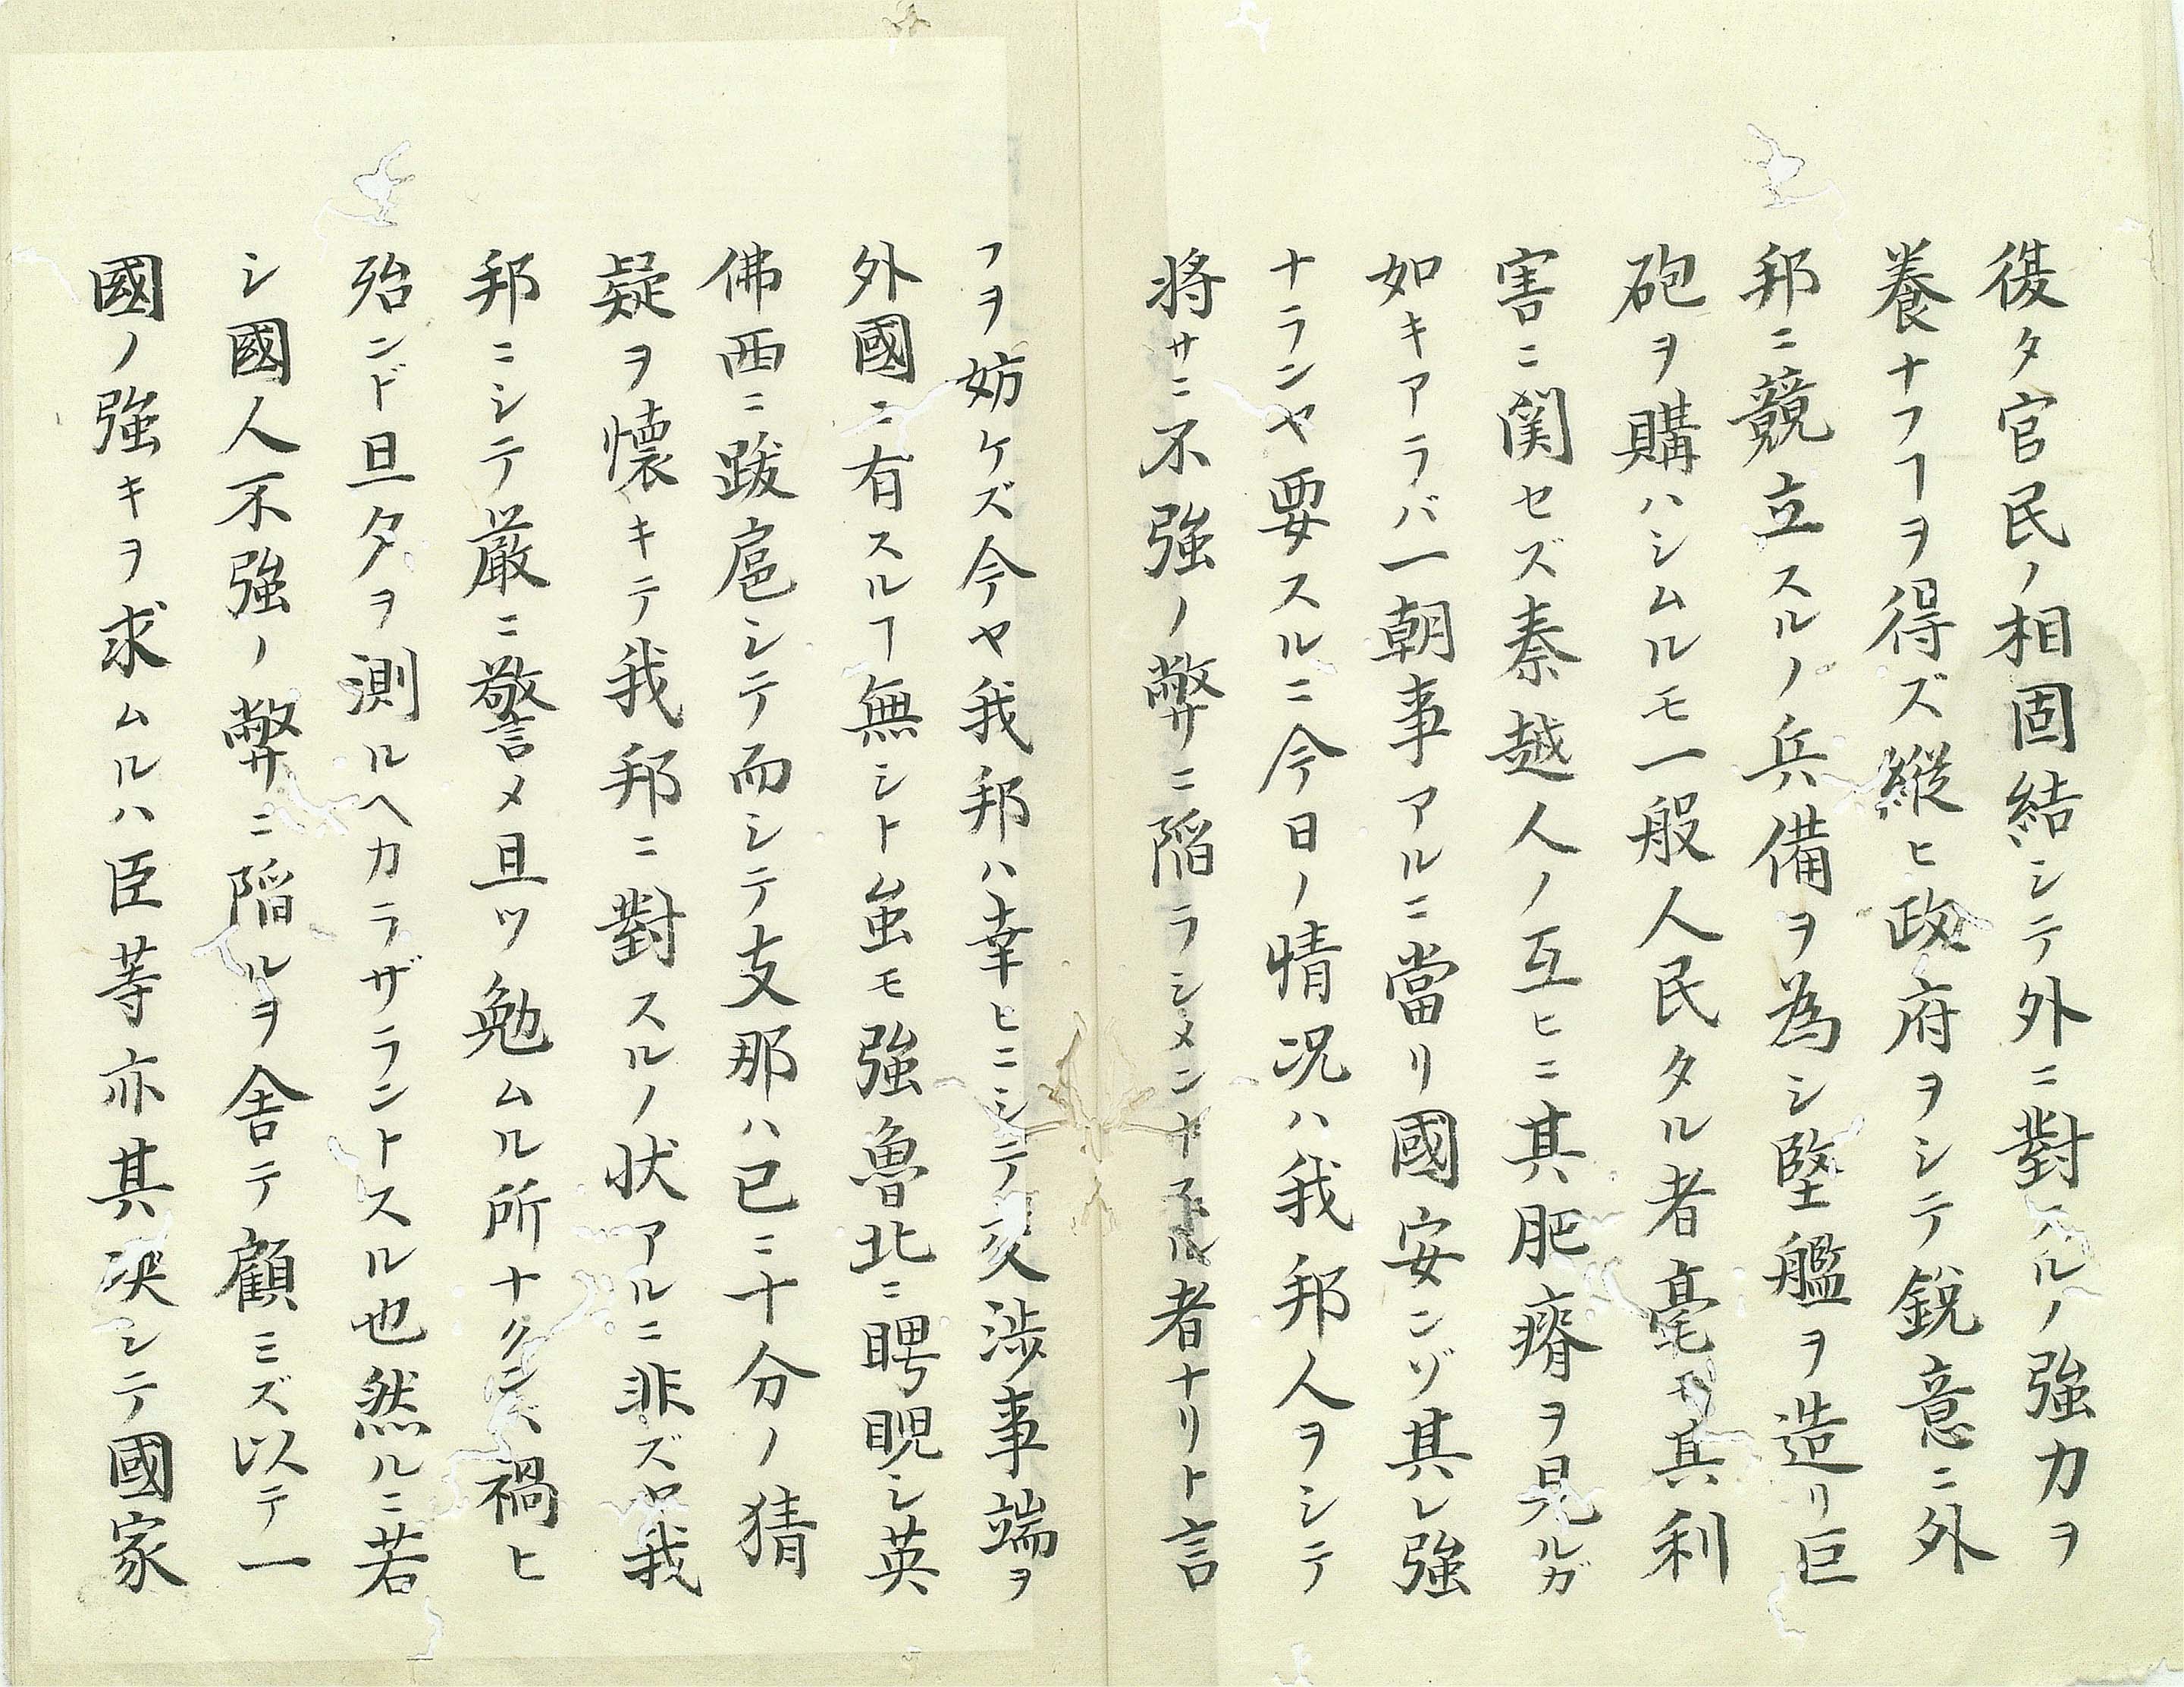 復タ官民ノ相固結シテ外ニ對スルノ強力ヲ
養ナフヿヲ得ズ縱ヒ政府ヲシテ鋭意ニ外
邦ニ競立スルノ兵備ヲ為シ堅艦ヲ造リ巨
砲ヲ購ハシムルモ一般人民タル者毫モ其利
害ニ関セズ秦越人ノ互ヒニ其肥瘠ヲ見ルガ
如キアラバ一朝事アルニ當リ國安ンゾ其レ強
ナランヤ要スルニ今日ノ情况ハ我邦人ヲシテ
将サニ不強ノ弊ニ陥ラシメントスル者ナリト言
フヲ妨ケズ今ヤ我邦ハ幸ヒニシテ交渉事端ヲ
外國ニ有スルヿ無シト虽モ強魯北ニ睥睨シ英
佛西ニ跋扈シテ而シテ支那ハ已ニ十分ノ猜
疑ヲ懐キテ我邦ニ對スルノ状アルニ非ズヤ我
邦ニシテ厳ニ警メ且ツ勉ムル所ナクンバ禍ヒ
殆ンド旦夕ヲ測ルヘカラザラントスル也然ルニ若
シ國人不強ノ弊ニ陥ルヲ舎テ顧ミズ以テ一
國ノ強キヲ求ムルハ臣等亦其决シテ國家